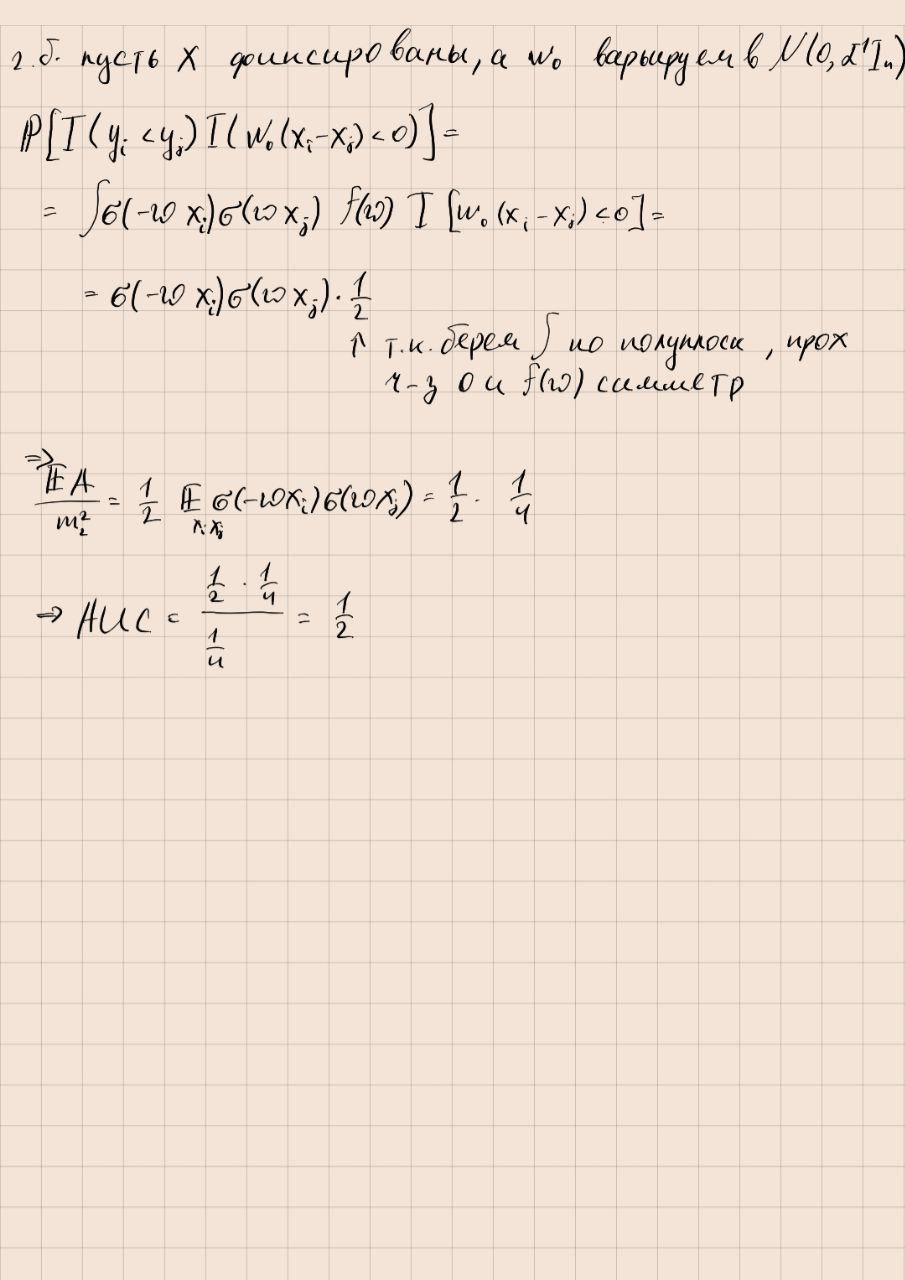 2.б. пусть X фиксированы, а w₀ варьируем в N(0, α⁻¹Iₙ)
P[I(yᵢ < yⱼ) I(w₀(xᵢ-xⱼ) < 0)] =
= ∫σ(-w xᵢ)σ(w xⱼ) f(w) I [w₀(xᵢ - xⱼ) < 0] =
= σ(-w xᵢ)σ(w xⱼ) · 1/2
↑ т.к. берем ∫ по полуплоск, прох
ч-з 0 и f(w) симметр
⇒ EA/m² = 1/2 E σ(-w xᵢ)σ(w xⱼ) = 1/2 · 1/4
⇒ AUC = (1/2 · 1/4)/(1/4) = 1/2